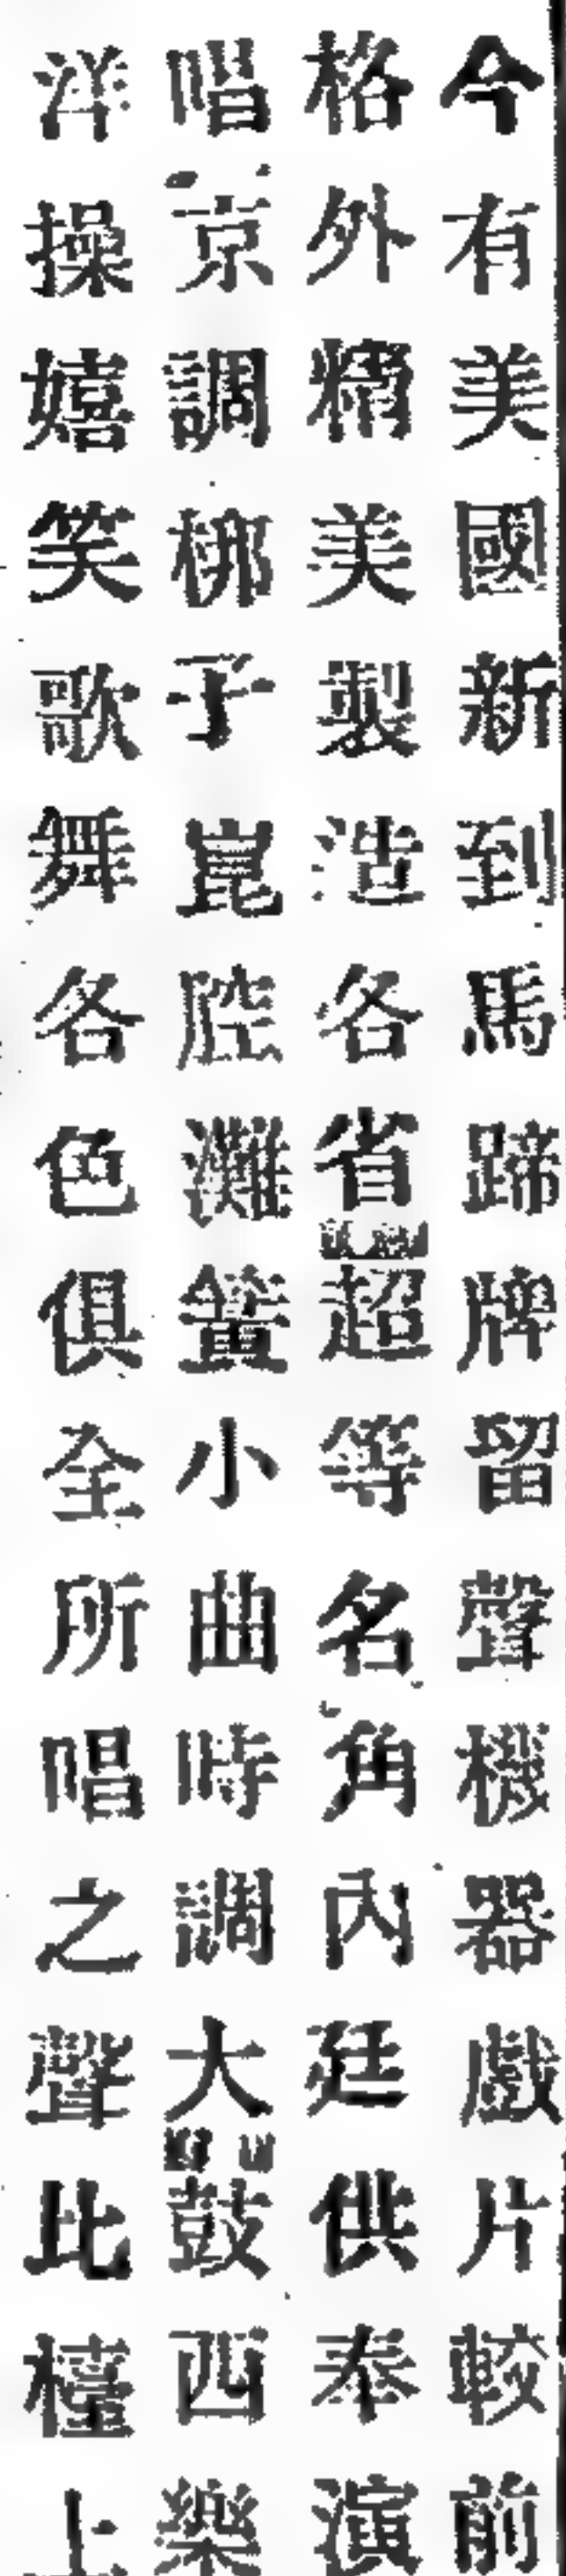 今有美國新到馬蹄牌留聲機器戲片較前
格外精美製造各省超等名角內廷供奉演
唱京調梆子崑腔灘簧小曲時調大鼓西樂
洋操嬉笑歌舞各色俱全所唱之聲此檯上